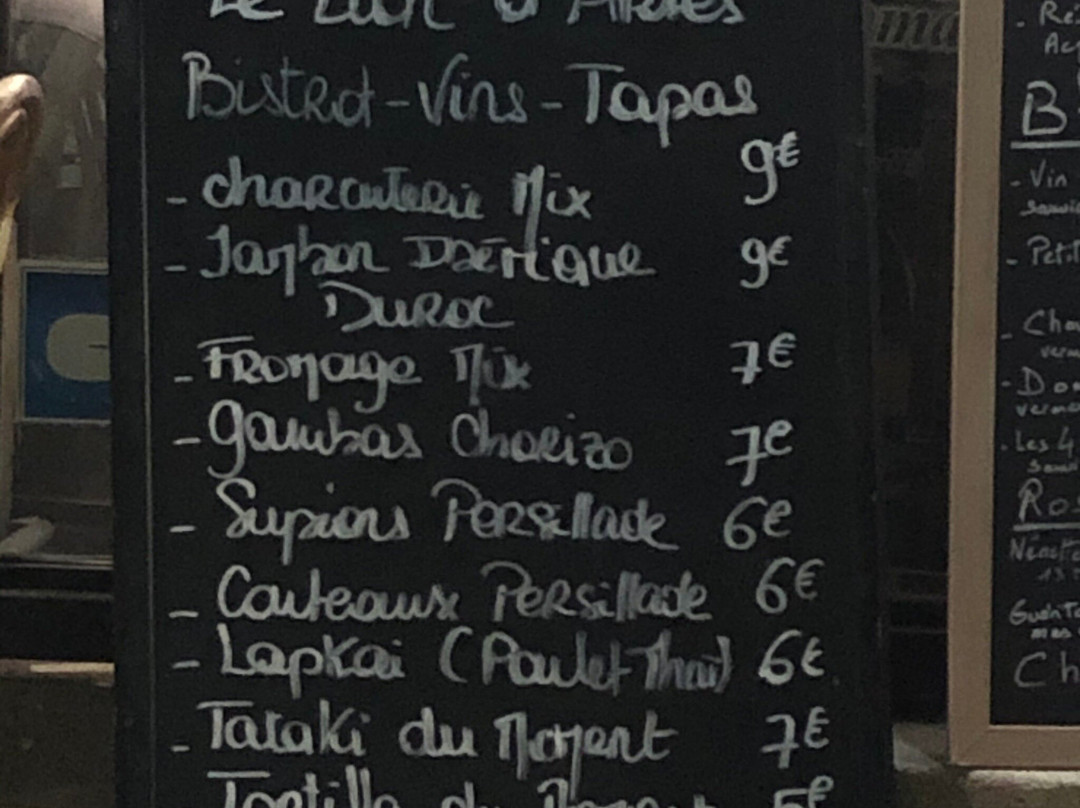 Bistrot-Vins-Tapas
- charcuterie Mix 9€
- Jambon Ibérique 9€
Duroc
- Fromage Mix 7€
- gambas Chorizo 7€
- Supions Persillade 6€
- Couteaux Persillade 6€
- LapKai (Poulet Thaï) 6€
- Tataki du Moment 7€
Tortilla du Moment 5€
B
- Vin
- Petit
- Cha
- Do
- Les 4
Ros
Ch